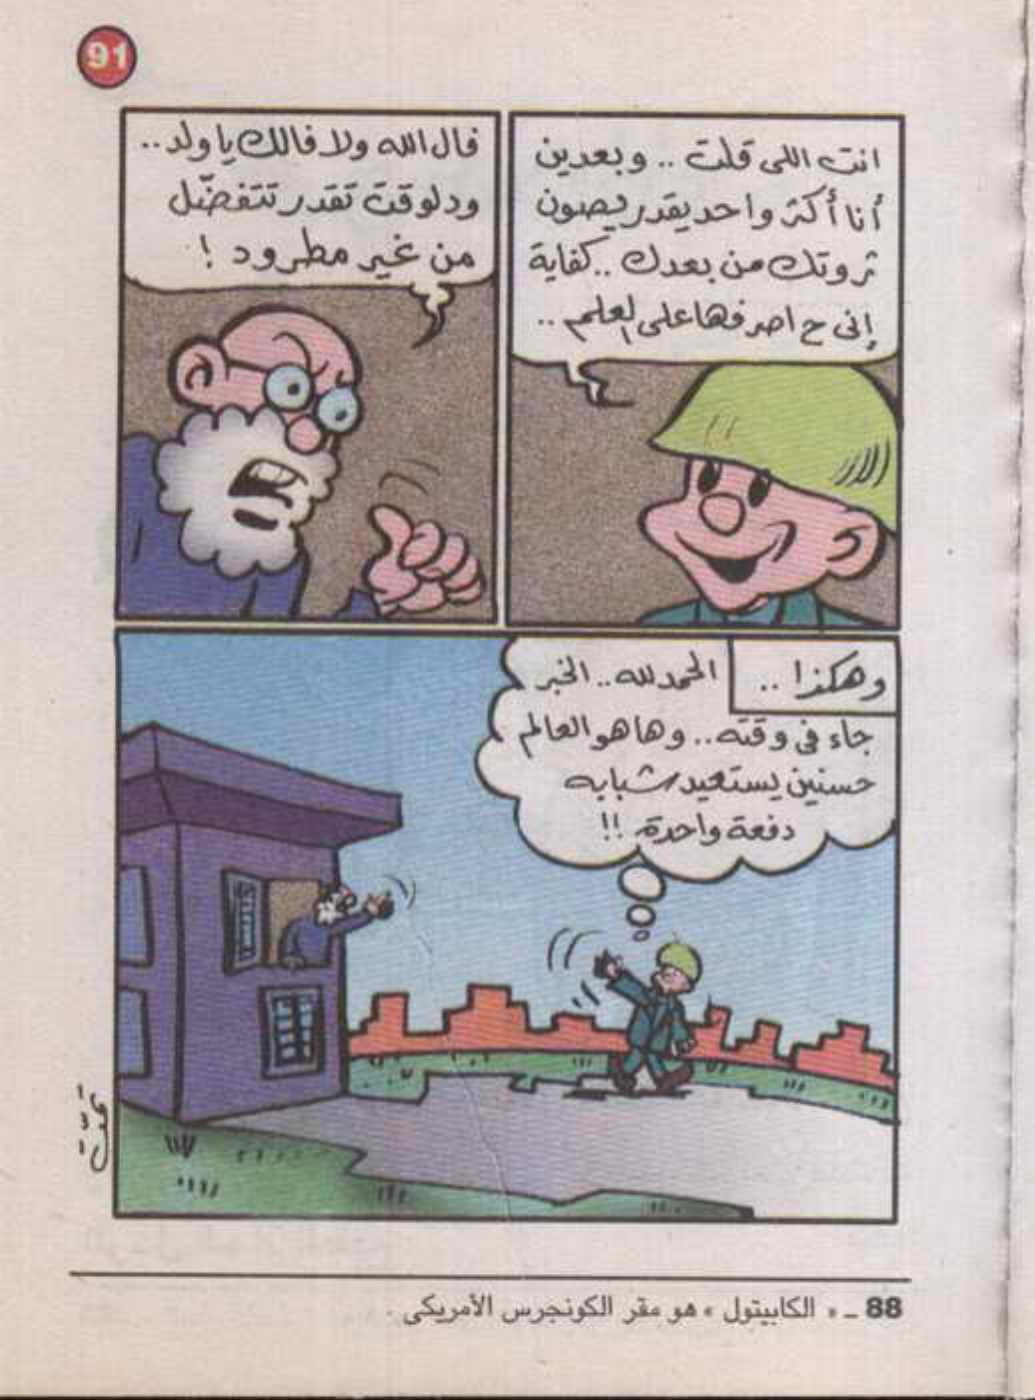 91
انت اللى قلت .. وبعدين
أنا أكتر واحد يقدر يصون
ثروتك من بعدك .. كفاية
إنى ح اصرفها على العلم ..
فال الله ولا فالك يا ولد ..
ودلوقت تقدر تتفضّل
من غير مطرود !
وهكذا ..
الحمد لله .. الخبر
جاء فى وقته .. وها هو العالم
حسنين يستعيد شبابه
دفعة واحدة !!
88 ـ « الكابيتول » هو مقر الكونجرس الأمريكى .